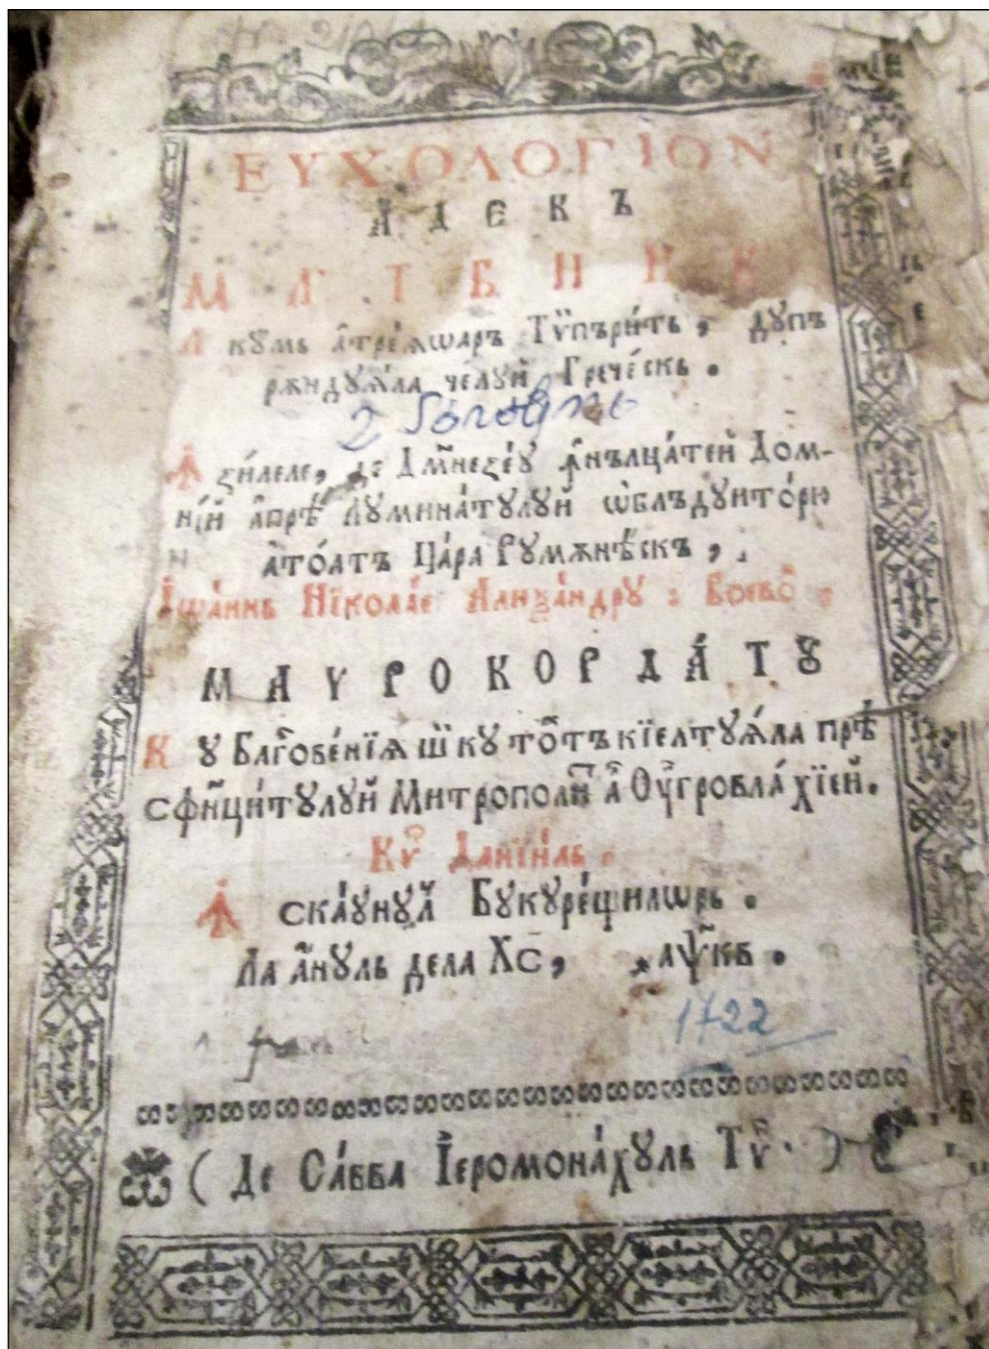 ЕΥΧΟΛΟΓΙΟΝ
АДЕКЪ
МЛТВНИК
А кумь а҆треѧѡаръ Тѷпъри́ть, дꙋпъ
рѫндꙋѧ́ла челꙋй Грече́скь.
Ꙟ зи́леле, Дм҃незе́ꙋ ꙟнълца́тей Дом-
нїй а҆прѣ Лꙋмина́тꙋлꙋй ѡ҆блъдꙋито́рю
ато́атъ Ца́ра Рꙋмѫнѣ́скъ,
І҆ѡа́ннь Нїкола́е Алеѯа́ндрꙋ: Воево҃:
МАѴРОКОРДА́ТꙊ
Кꙋ Баг҃ове́нїѧ ш҆ кꙋ то́тъ кїелтꙋѧ́ла прѣ
сфи҃ци́тꙋлꙋй Митрополи́т а҆ Оу҆гровла́хїей.
Кѵ҃ Данїи́ль.
Ꙟ ска́ꙋнꙋл Бꙋкꙋре́щилѡрь.
Ла а҆нꙋль дела Хс, ҂аѱ҃кв.
1722
(Де Са́вва І҆еромона́хꙋль Тѵ҃.)